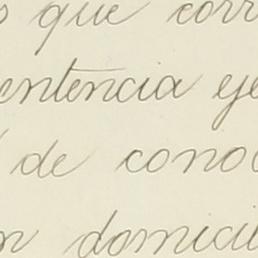 s que corr
entencia eje
de cono
n domicili